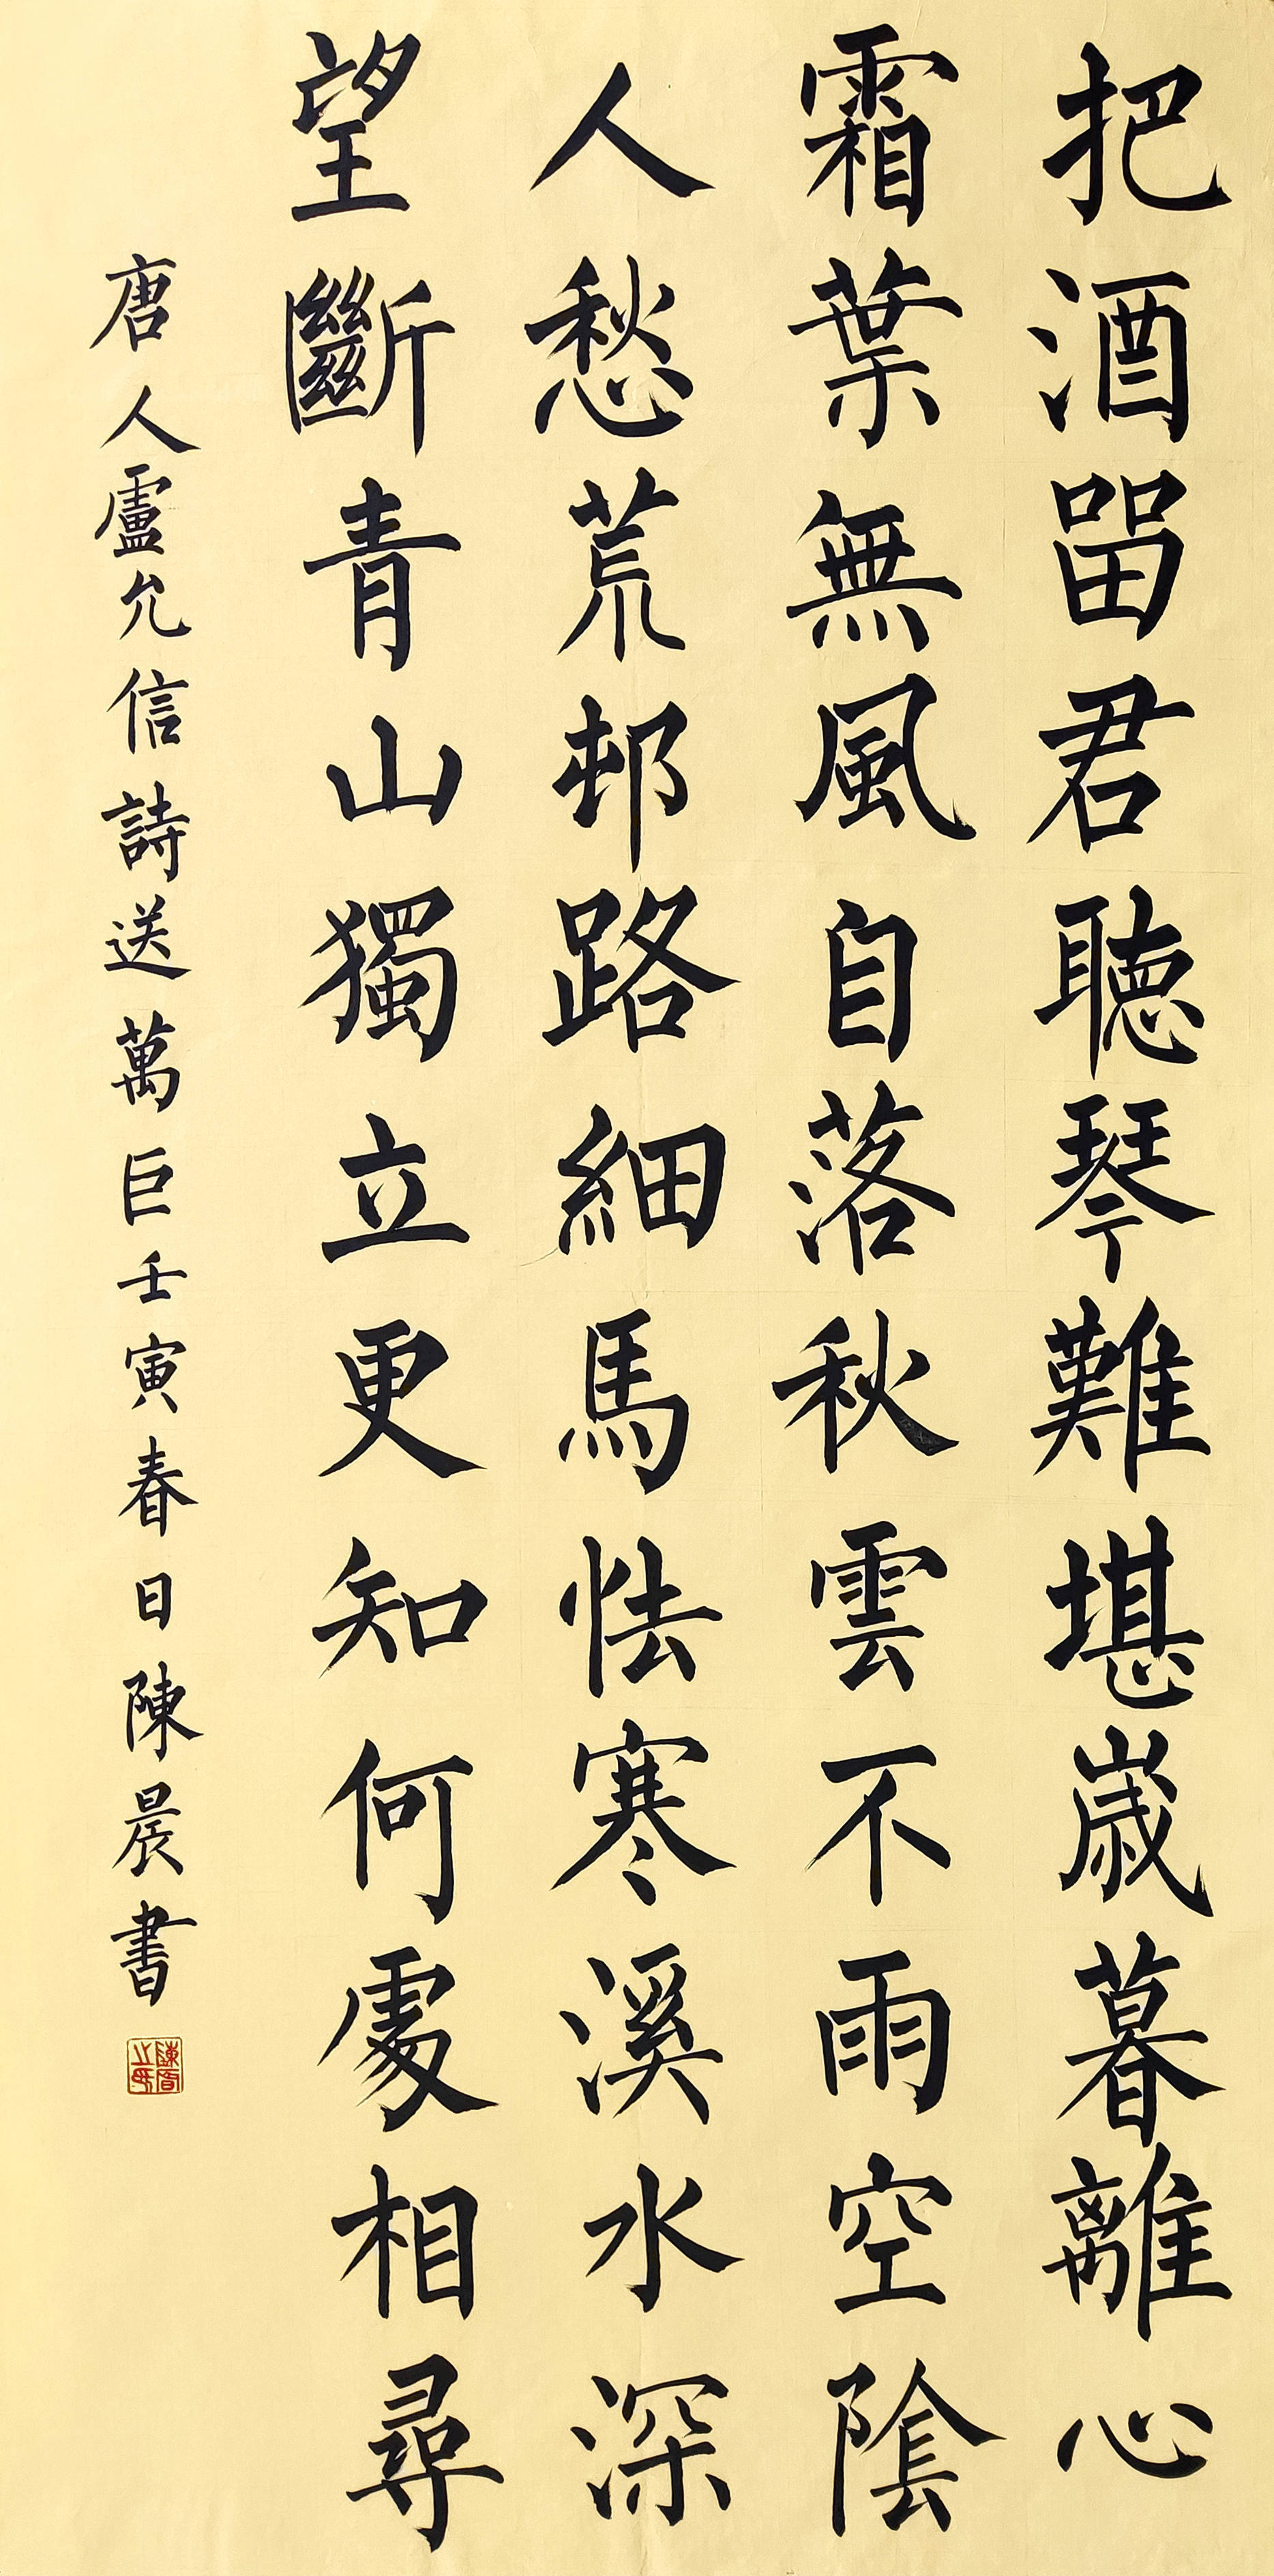 把酒畱君聽琴難堪歲暮離心
霜葉無風自落秋雲不雨空陰
人愁荒邨路細馬怯寒溪水深
望斷青山獨立更知何處相尋
唐人盧允信詩送萬巨壬寅春日陳晨書